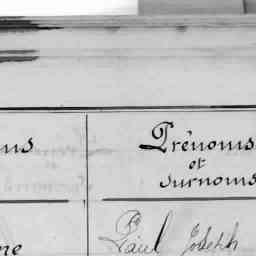 Prénoms
et
surnoms
Paul Joseph